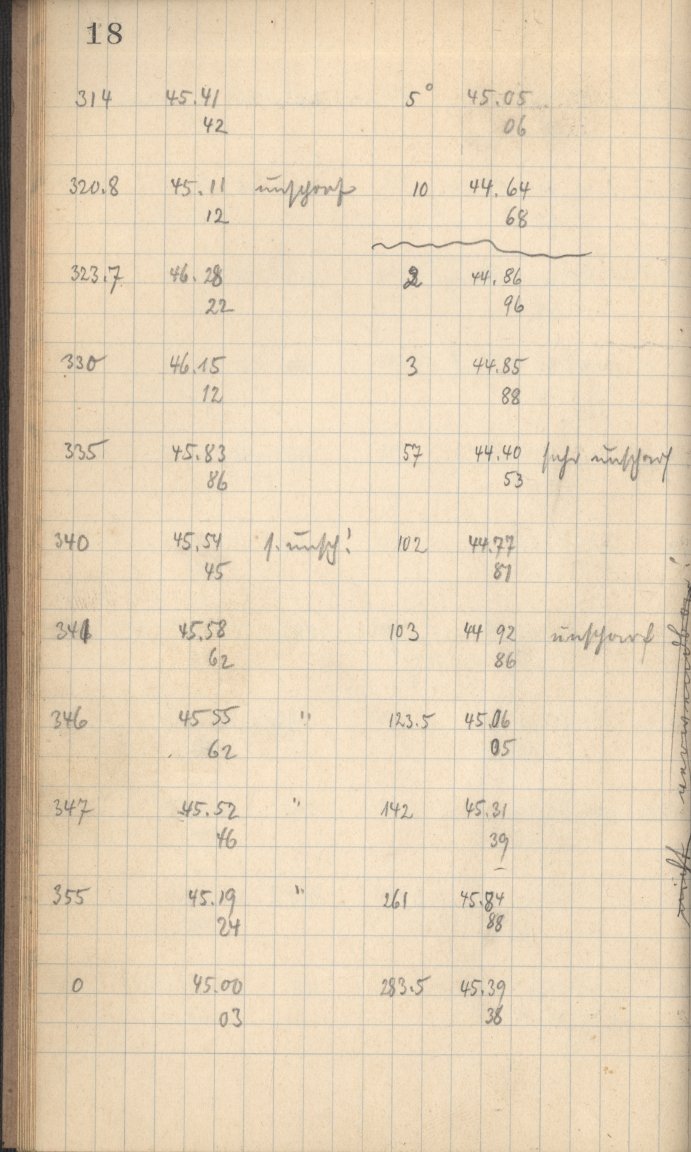 18
314 45.41 5° 45.05
42 06
320.8 45.11 unscharf 10 44.64
12 68
323.7 46.28 2 44.86
22 96
330 46.15 3 44.85
12 88
335 45.83 57 44.40 sehr unscharf
86 53
340 45.54 s. unsch! 102 44.77
45 81
341 45.58 103 44 92 unscharf
62 86
346 45 55 " 123.5 45.06
62 05
347 45.52 " 142 45.31
46 39
355 45.19 " 261 45.84
24 88
0 45.00 283.5 45.39
03 38